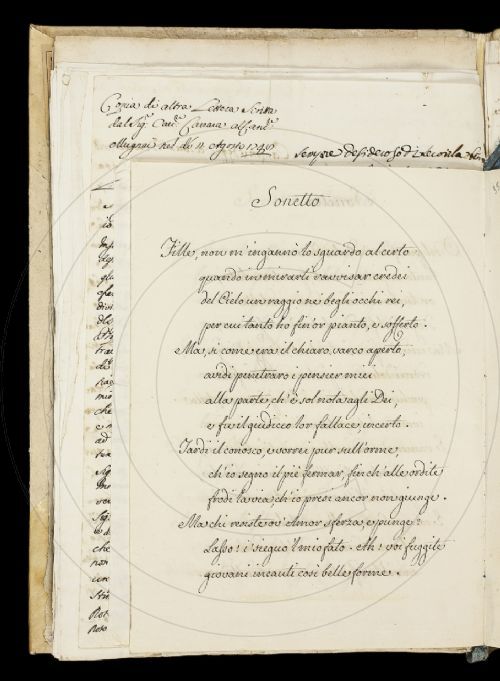 Copia di altra Lettera Scritta
dal Sig.r Cav.r Carrara al
nel dì 11 Agosto
sempre desideroso di
Sonetto
Fille, non m'ingannò lo sguardo al certo
quando in mirarti ravvisar credei
del Cielo un raggio ne' begli occhi rei,
per cui tanto ho fin'or pianto, e sofferto.
Ma, si come era il chiaro varco aperto,
avidi penetraro i pensier miei
alla parte, ch'è sol nota agli Dei,
e fu il giudicio lor fallace, incerto.
Tardi il conosco, e vorrei pur sull'orme,
ch'io segno il piè fermar, finch'alle ordite
frodi la rea, ch'io presi ancor non giunge.
Ma chi resiste ov'Amor sferza, e punge?
Lasso! i' sieguo 'l mio fato. Ah! voi fuggite
giovani incauti così belle forme.
che
ad
Sig.
che
non